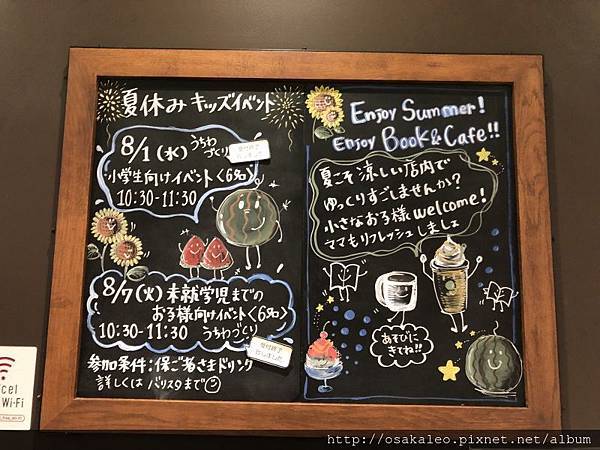 夏休みキッズイベント
8/1(水) うちわづくり
受付終了
致しました
小学生向けイベント<6名>
10:30-11:30
8/7(火) 未就学児までの
お子様向けイベント<6名>
10:30-11:30 うちわづくり
受付終了
致しました
参加条件:保ご者さまドリンク
詳しくはバリスタまで
Enjoy Summer!
Enjoy Book & Cafe!!
夏こそ涼しい店内で
ゆっくりすごしませんか?
小さなお子様welcome!
ママもリフレッシュしましょ
あそびに
きてね!!
cel
Wi-Fi
http://osakaleo.pixnet.net/album